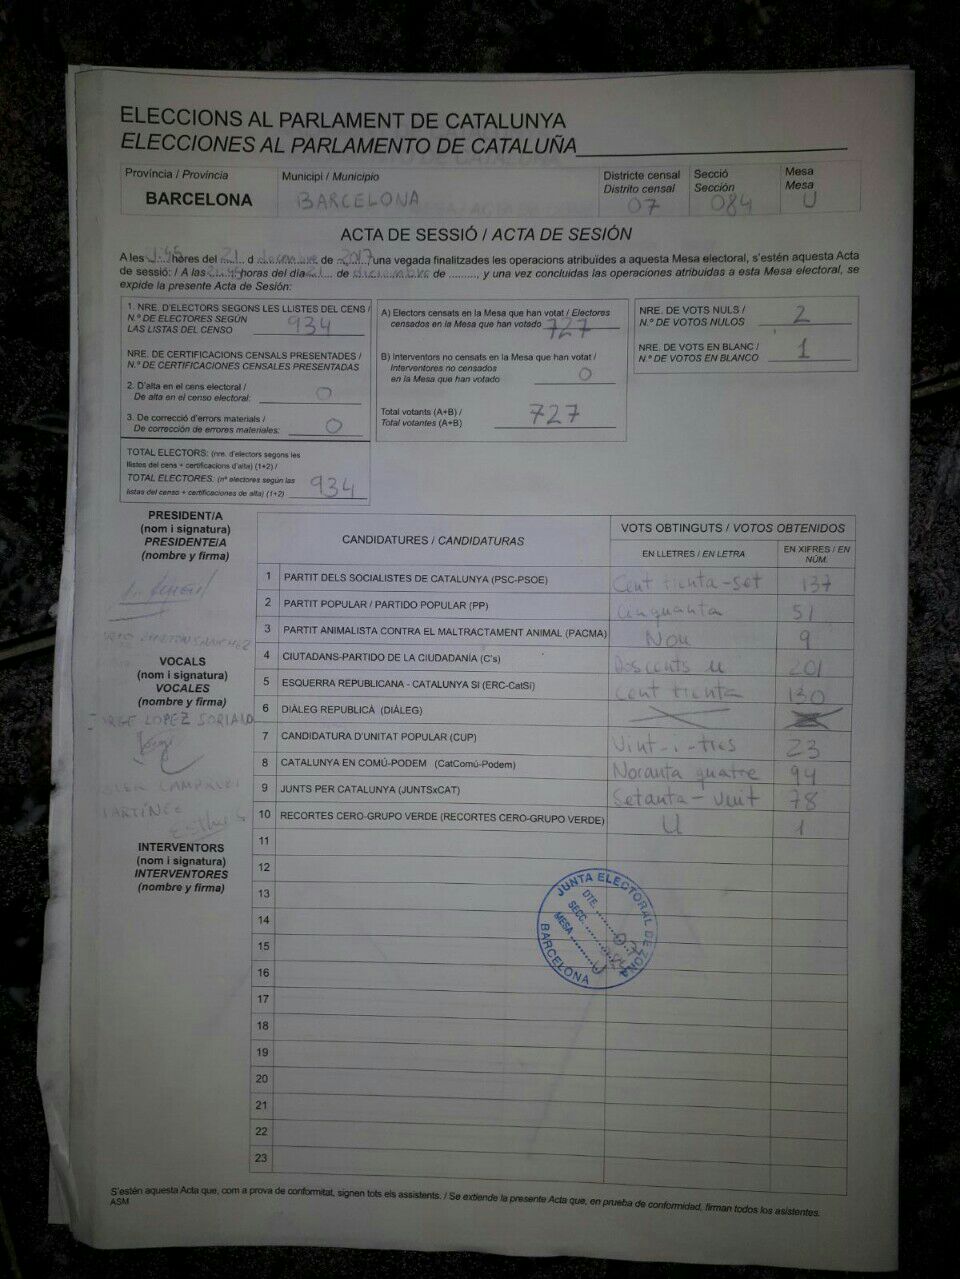 ELECCIONS AL PARLAMENT DE CATALUNYA
ELECCIONES AL PARLAMENTO DE CATALUÑA
Província / Provincia
BARCELONA
Municipi / Municipio
BARCELONA
Districte censal
Distrito censal
07
Secció
Sección
084
Mesa
Mesa
U
ACTA DE SESSIÓ / ACTA DE SESIÓN
A les hores del 21 d desembre de 2017 una vegada finalitzades les operacions atribuïdes a aquesta Mesa electoral, s'estén aquesta Acta
de sessió: / A las horas del día 21 de diciembre de ........., y una vez concluidas las operaciones atribuidas a esta Mesa electoral, se
expide la presente Acta de Sesión:
1. NRE. D'ELECTORS SEGONS LES LLISTES DEL CENS /
N.º DE ELECTORES SEGÚN
LAS LISTAS DEL CENSO 934
NRE. DE CERTIFICACIONS CENSALS PRESENTADES /
N.º DE CERTIFICACIONES CENSALES PRESENTADAS
2. D'alta en el cens electoral /
De alta en el censo electoral: 0
3. De correcció d'errors materials /
De corrección de errores materiales: 0
TOTAL ELECTORS: (nre. d'electors segons les
llistes del cens + certificacions d'alta) (1+2) /
TOTAL ELECTORES: (nº electores según las
listas del censo + certificaciones de alta) (1+2) 934
A) Electors censats en la Mesa que han votat / Electores
censados en la Mesa que han votado 727
B) Interventors no censats en la Mesa que han votat /
Interventores no censados
en la Mesa que han votado 0
Total votants (A+B) /
Total votantes (A+B) 727
NRE. DE VOTS NULS /
N.º DE VOTOS NULOS 2
NRE. DE VOTS EN BLANC /
N.º DE VOTOS EN BLANCO 1
PRESIDENT/A
(nom i signatura)
PRESIDENTE/A
(nombre y firma)
VOCALS
(nom i signatura)
VOCALES
(nombre y firma)
JORGE LOPEZ SORIANO
MARTÍNEZ
Esther
INTERVENTORS
(nom i signatura)
INTERVENTORES
(nombre y firma)
CANDIDATURES / CANDIDATURAS
VOTS OBTINGUTS / VOTOS OBTENIDOS
EN LLETRES / EN LETRA
EN XIFRES / EN NÚM.
1 PARTIT DELS SOCIALISTES DE CATALUNYA (PSC-PSOE) Cent trenta-set 137
2 PARTIT POPULAR / PARTIDO POPULAR (PP) Cinquanta 51
3 PARTIT ANIMALISTA CONTRA EL MALTRACTAMENT ANIMAL (PACMA) Nou 9
4 CIUTADANS-PARTIDO DE LA CIUDADANÍA (C's) Doscents u 201
5 ESQUERRA REPUBLICANA - CATALUNYA SÍ (ERC-CatSí) Cent trenta 130
6 DIÀLEG REPUBLICÀ (DIÀLEG)
7 CANDIDATURA D'UNITAT POPULAR (CUP) Vint-i-tres 23
8 CATALUNYA EN COMÚ-PODEM (CatComú-Podem) Noranta quatre 94
9 JUNTS PER CATALUNYA (JUNTSxCAT) Setanta-vuit 78
10 RECORTES CERO-GRUPO VERDE (RECORTES CERO-GRUPO VERDE) U 1
11
12
13
14
15
16
17
18
19
20
21
22
23
JUNTA ELECTORAL DE ZONA
DTE. 07
SECC. 084
MESA U
BARCELONA
S'estén aquesta Acta que, com a prova de conformitat, signen tots els assistents. / Se extiende la presente Acta que, en prueba de conformidad, firman todos los asistentes.
ASM